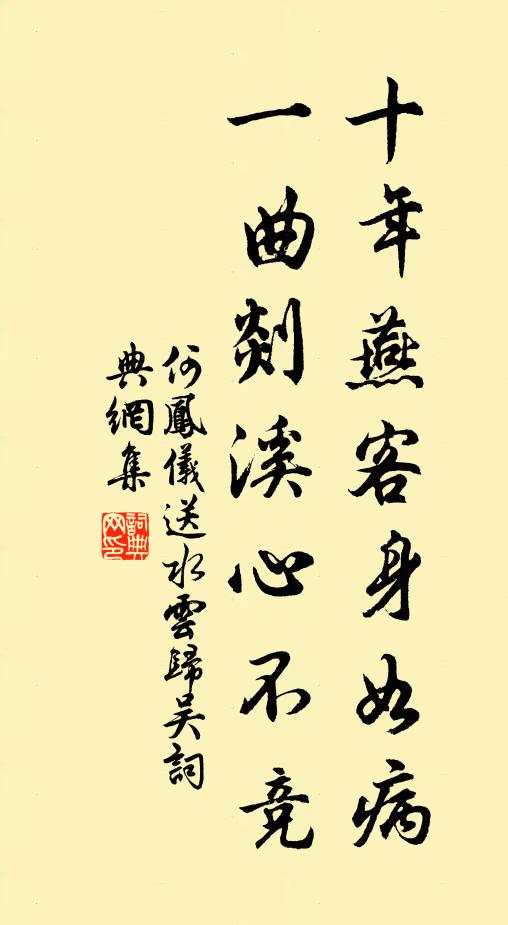 十年燕客身如病
一曲剡溪心不竞
何鳳儀送水雲歸吴詞
典網集
詞典
网印